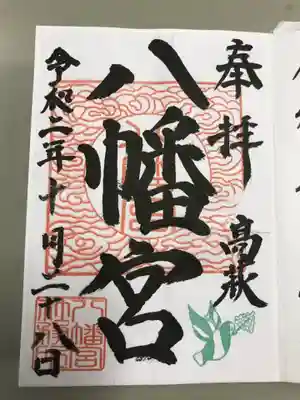 奉拝 高萩
八幡宮
令和二年十月二十八日